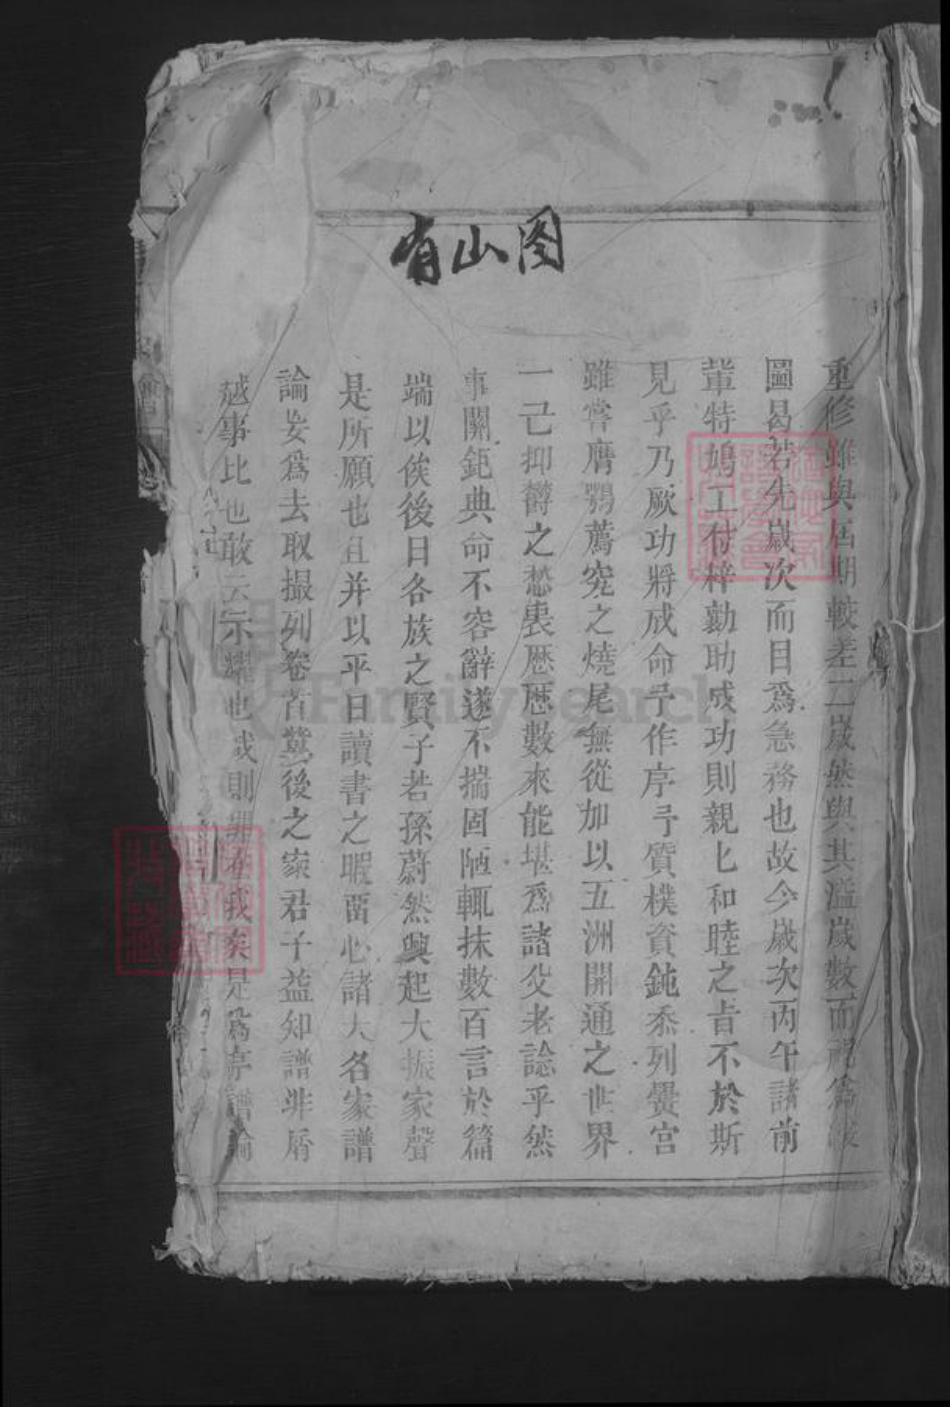 有山图
重修雖與居期較差二歲然與其溢歲數而視為
圖曷若先歲次而目為急務也故今歲次丙午諸前
輩特鳩工付梓勷助成功則親匕和睦之旨不於斯
見乎乃厥功將成命予作序予質樸資鈍忝列黌宮
雖嘗膺鶚薦究之燒尾無從加以五洲開通之世界
一己抑欝之愁裏歷歷數來能堪為諸父老諗乎然
事關鉅典命不容辭遂不揣固陋輒抹數百言於篇
端以俟後日各族之賢子若孫蔚然興起大振家聲
是所願也且并以平日讀書之暇畱心諸大名家譜
論妄為去取撮列卷首冀後之家君子益知譜非屑
越事比也敢云宗耀也哉則是為序譜論
FamilySearch